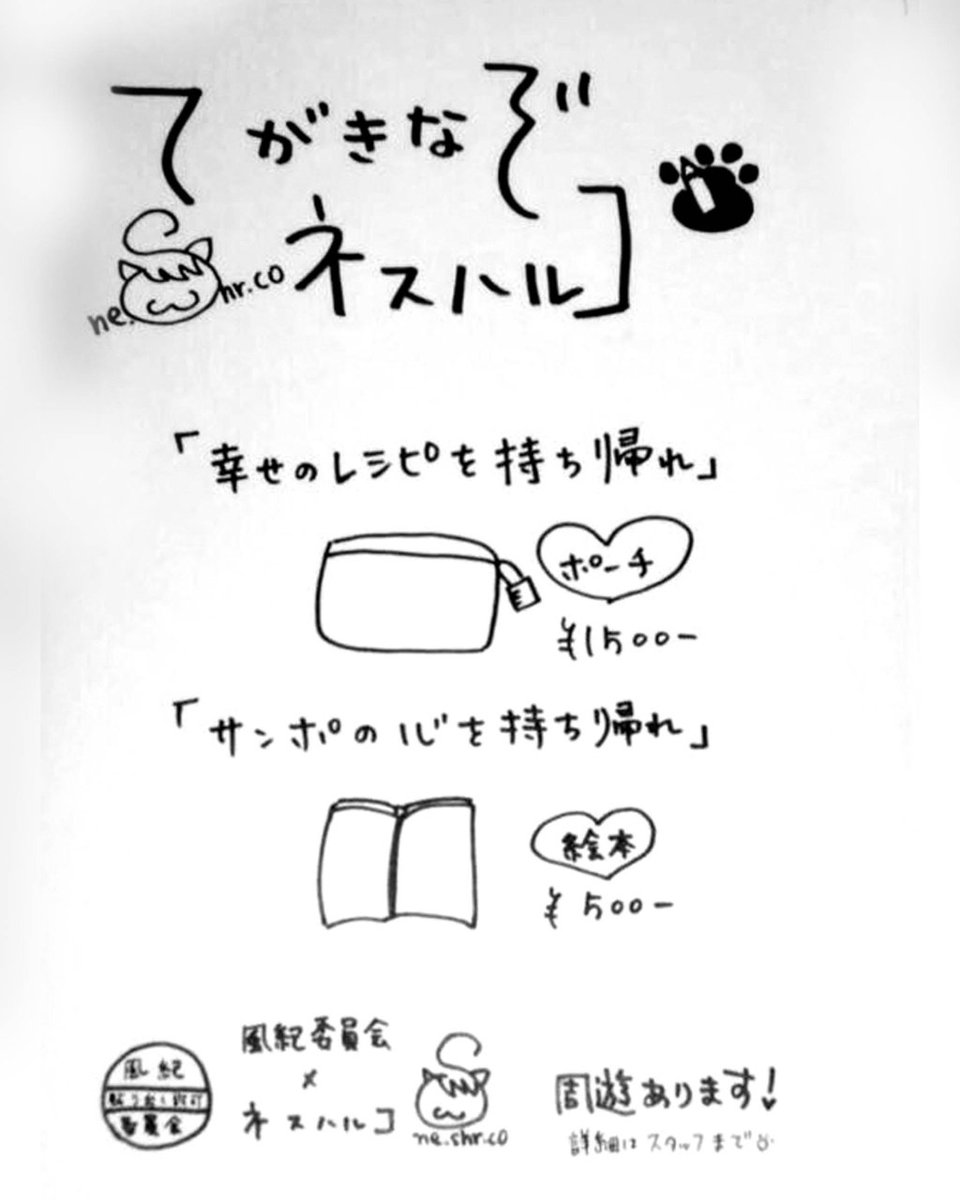 てがきなぞ
ne.shr.co
ネスハルコ
「幸せのレシピを持ち帰れ」
ポーチ
¥1500-
「サンポの心を持ち帰れ」
絵本
¥500-
風紀
持ち出し許可
委員会
風紀委員会
×
ネスハルコ
ne.shr.co
周遊あります!
詳細はスタッフまで